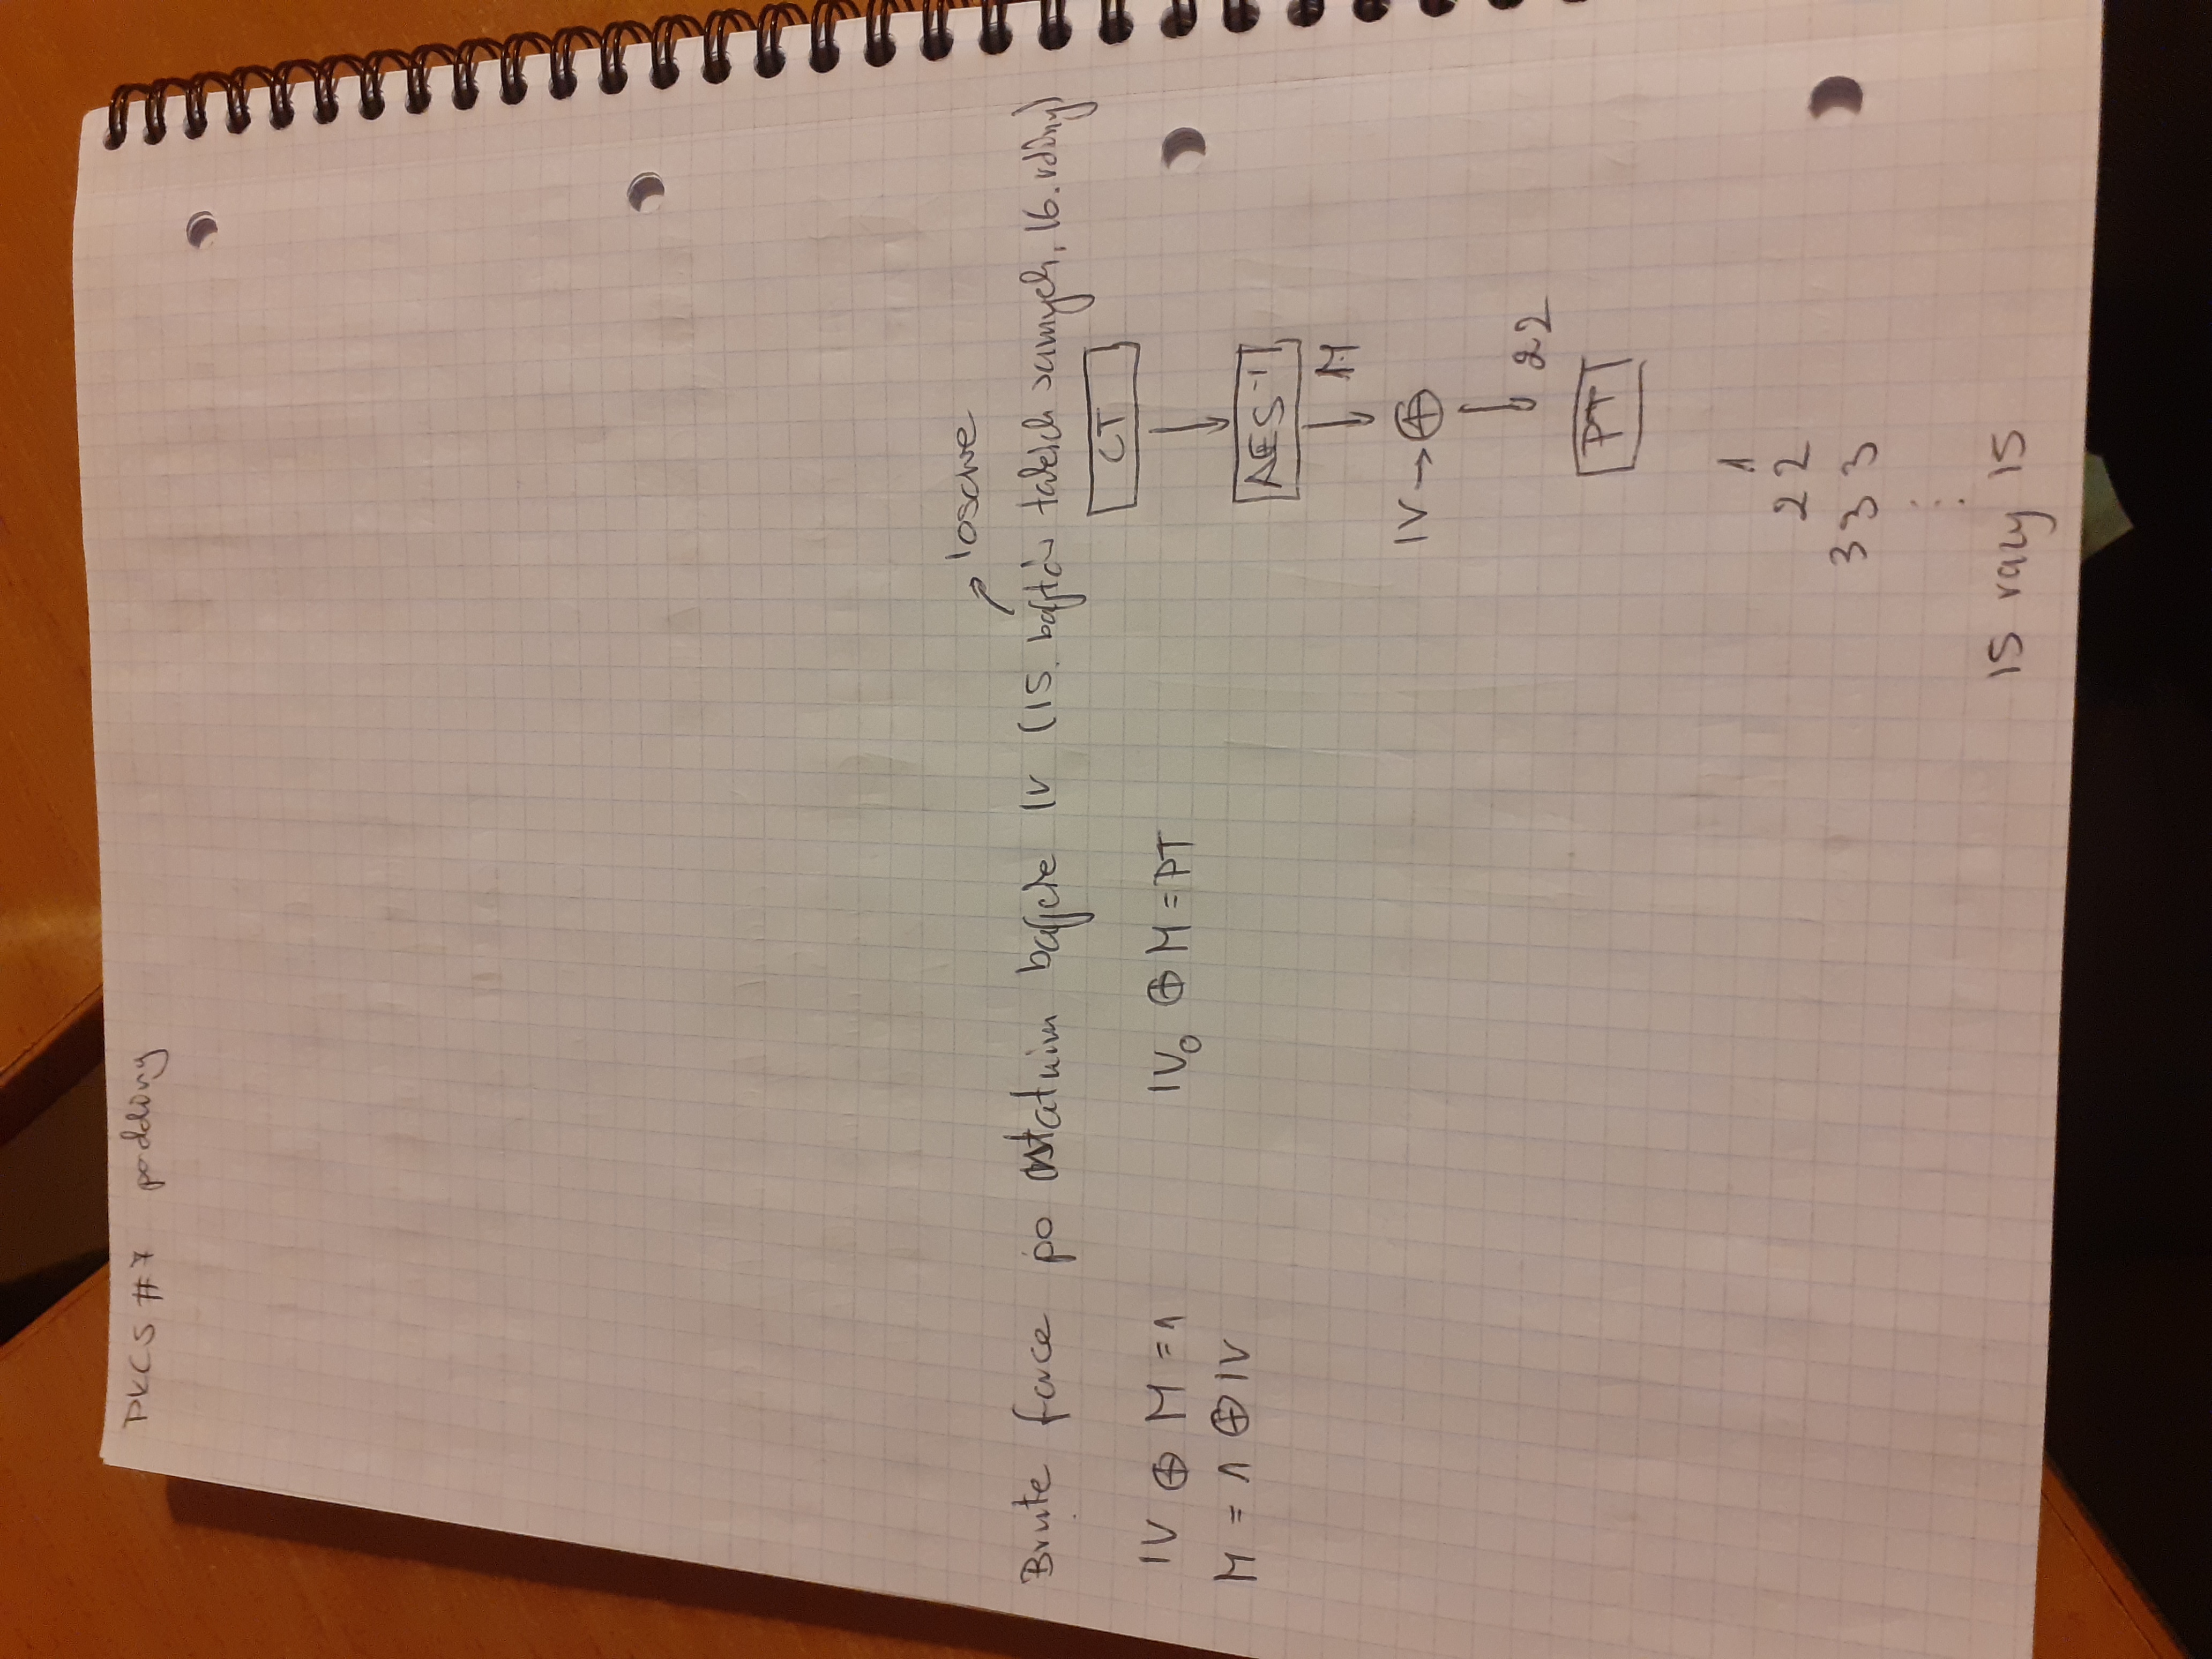 PKCS #7 padding
losowe
Brute force po ostatnim bajcie IV (15. bajtów takich samych, 16. różny)
CT
IV ⊕ M = 1
IV₀ ⊕ M = PT
M = 1 ⊕ IV
AES⁻¹
M
IV → ⊕
22
PT
1
2 2
3 3 3
⋮
15 razy 15